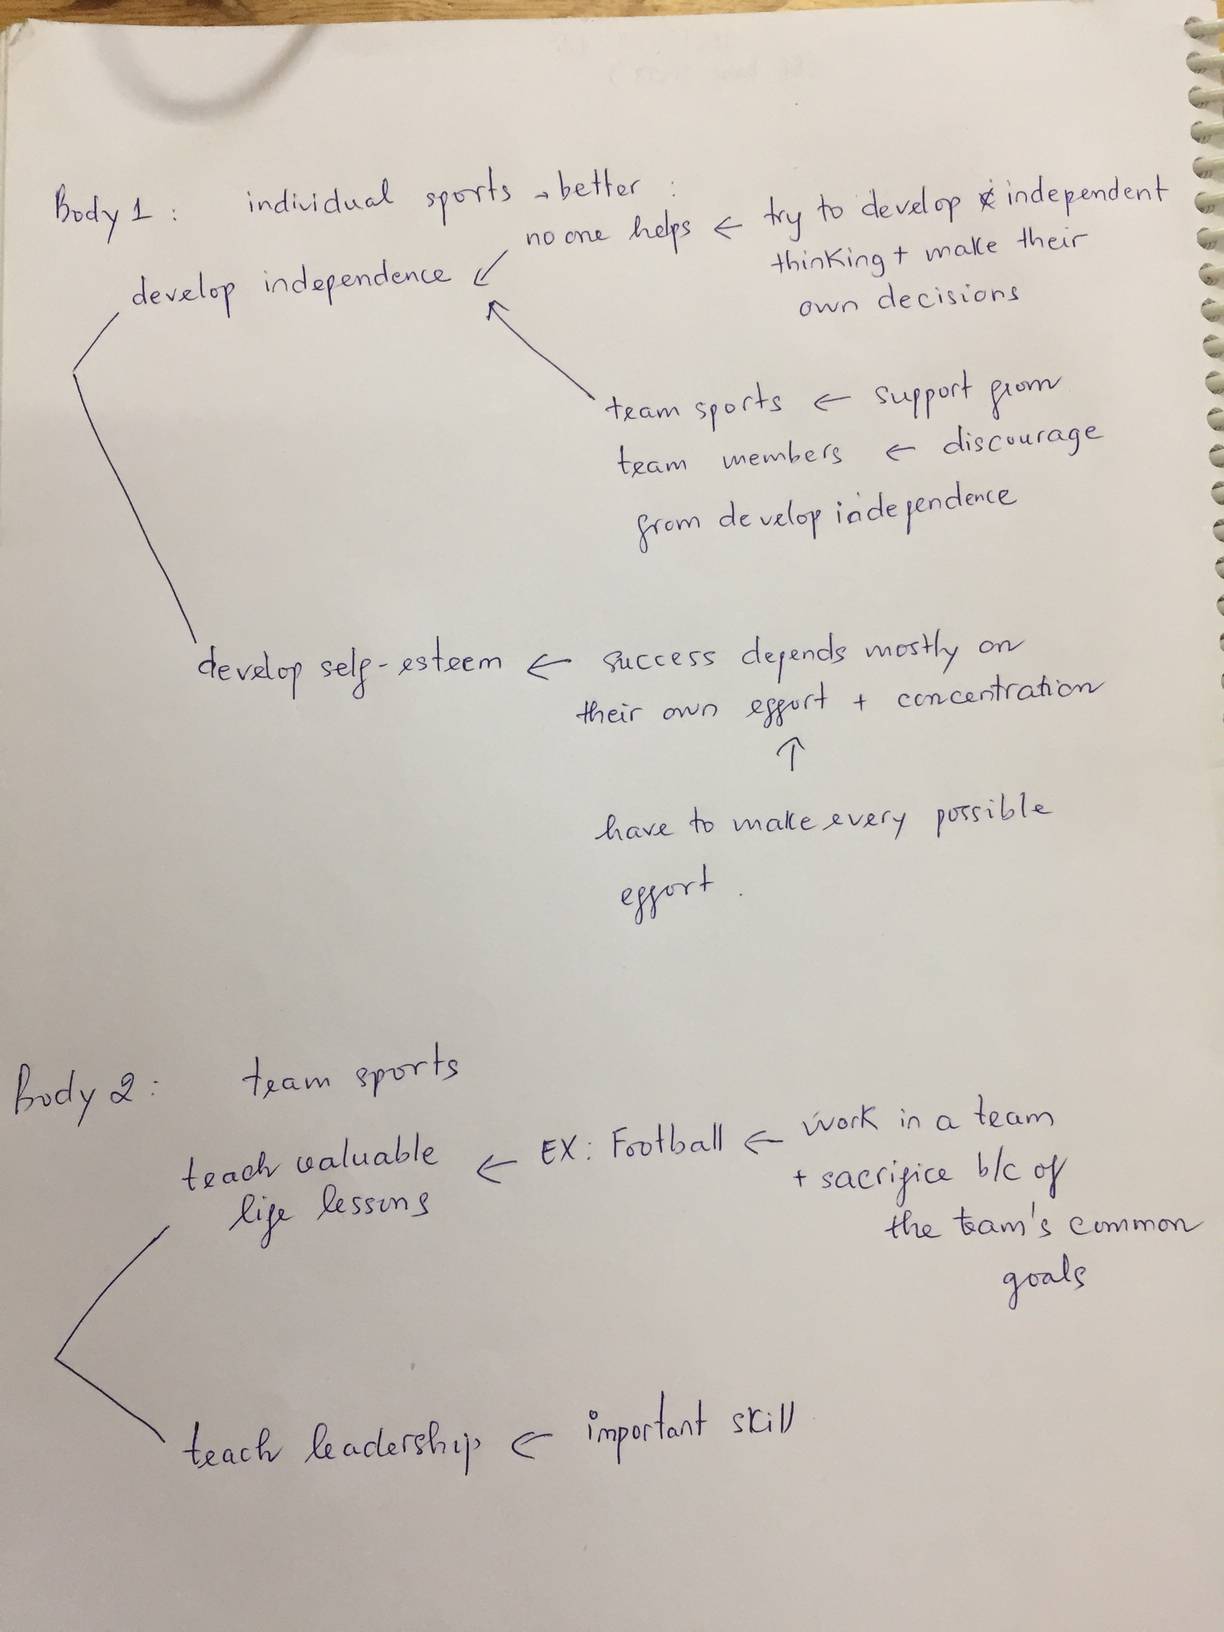 Body 1 : individual sports → better :
no one helps ← try to develop independent
thinking + make their
own decisions
develop independence ↙
team sports ← support from
team members ← discourage
from develop independence
develop self-esteem ← success depends mostly on
their own effort + concentration
↑
have to make every possible
effort .
Body 2 : team sports
teach valuable
life lessons
← EX : Football ← work in a team
+ sacrifice b/c of
the team's common
goals
teach leadership ← important skill